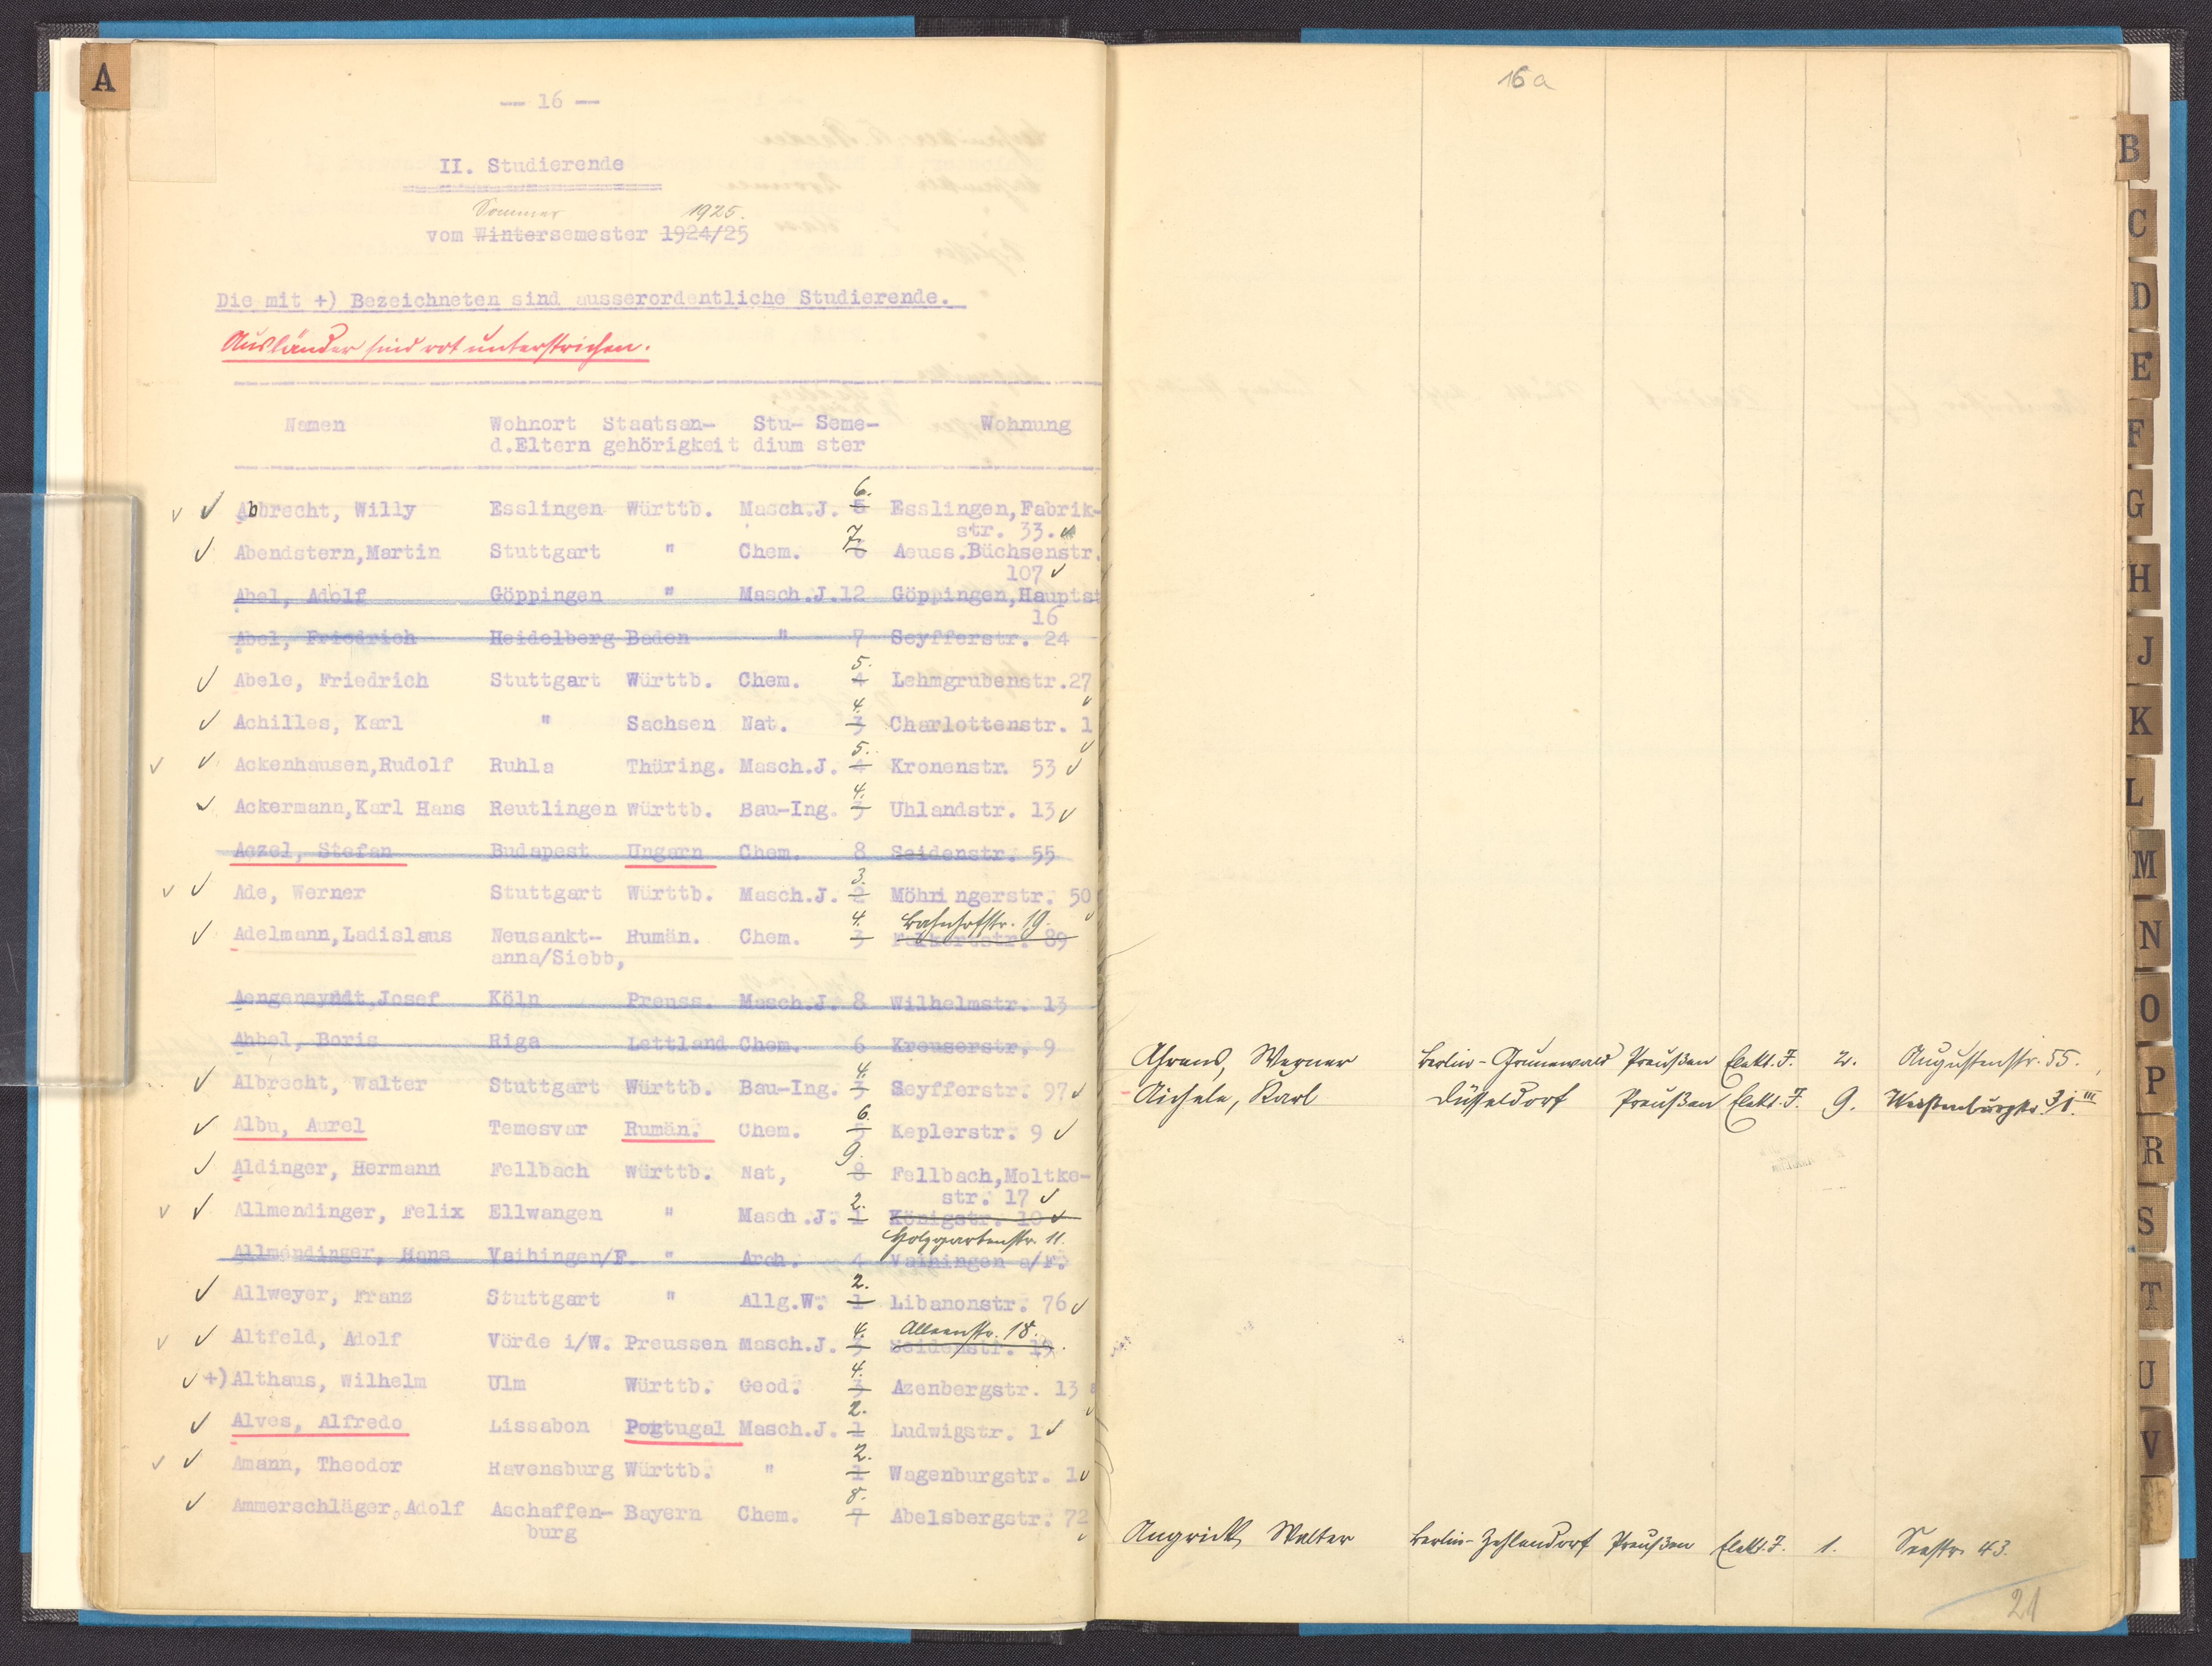 A
— 16 —
II. Studierende
Sommer 1925.
vom Wintersemester 1924/25
Die mit +) Bezeichneten sind ausserordentliche Studierende.
Ausländer sind rot unterstrichen.
Namen Wohnort Staatsan- Stu- Seme- Wohnung
d.Eltern gehörigkeit dium ster
6.
Abbrecht, Willy Esslingen Württb. Masch.J. 5 Esslingen,Fabrik-
str. 33.
7.
Abendstern,Martin Stuttgart " Chem. 6 Aeuss.Büchsenstr.
107
Abel, Adolf Göppingen " Masch.J.12 Göppingen,Hauptst
16
Abel, Friedrich Heidelberg Baden " 7 Seyfferstr. 24
5.
Abele, Friedrich Stuttgart Württb. Chem. 4 Lehmgrubenstr.27
4.
Achilles, Karl " Sachsen Nat. 3 Charlottenstr. 1
5.
Ackenhausen,Rudolf Ruhla Thüring. Masch.J. 4 Kronenstr. 53
4.
Ackermann,Karl Hans Reutlingen Württb. Bau-Ing. 3 Uhlandstr. 13
Aczel, Stefan Budapest Ungarn Chem. 8 Seidenstr. 55
3.
Ade, Werner Stuttgart Württb. Masch.J. 2 Möhringerstr. 50
4. Bahnhofstr. 19.
Adelmann,Ladislaus Neusankt- Rumän. Chem. 3 89
anna/Siebb,
Aengeneyndt,Josef Köln Preuss. Masch.J. 8 Wilhelmstr. 13
Ahbel, Boris Riga Lettland Chem. 6 Kreuserstr. 9
4.
Albrecht, Walter Stuttgart Württb. Bau-Ing. 3 Seyfferstr. 97
6.
Albu, Aurel Temesvar Rumän. Chem. 5 Keplerstr. 9
9.
Aldinger, Hermann Fellbach Württb. Nat, 8 Fellbach,Moltke-
str. 17
2.
Allmendinger, Felix Ellwangen " Masch.J. 1 Königstr. 10
Holzgartenstr. 11.
Allmendinger, Hans Vaihingen/F. " Arch. 4 Vaihingen a/F.
2.
Allweyer, Franz Stuttgart " Allg.W. 1 Libanonstr. 76
4. Alleenstr. 18.
Altfeld, Adolf Vörde i/W. Preussen Masch.J. 3 Seidenstr. 19
4.
+)Althaus, Wilhelm Ulm Württb. Geod. 3 Azenbergstr. 13
2.
Alves, Alfredo Lissabon Portugal Masch.J. 1 Ludwigstr. 1
2.
Amann, Theodor Ravensburg Württb. " 1 Wagenburgstr. 1
8.
Ammerschläger,Adolf Aschaffen- Bayern Chem. 7 Abelsbergstr. 72
burg
16a
Ahrens, Werner Berlin-Grunewald Preußen Elekt. J. 2. Augustenstr. 55.
Aichele, Karl Düsseldorf Preußen Elekt. J. 9. 31.III
Angrick, Walter Berlin-Zehlendorf Preußen Elekt. J. 1. Seestr. 43.
21
B
C
D
E
F
G
H
J
K
L
M
N
O
P
R
S
T
U
V